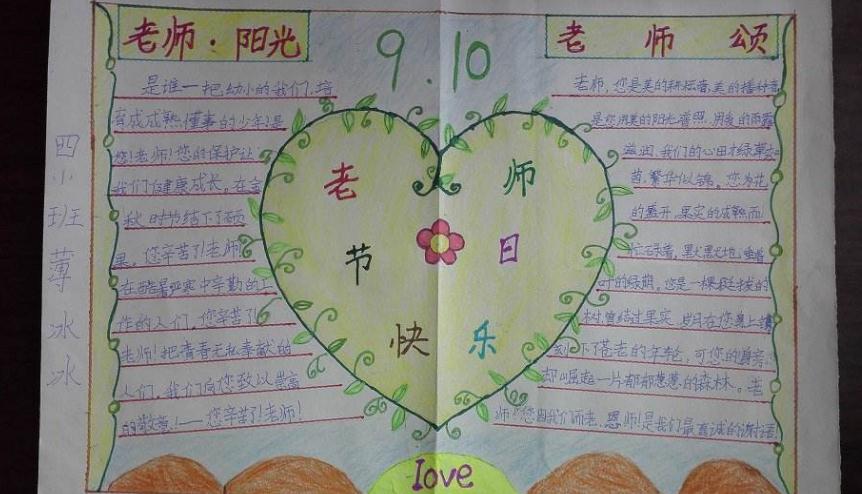 老师·阳光
9.10
老师颂
四小班薄冰冰
是谁一把幼小的我们，培
育成成熟懂事的少年？是
您！老师！您的保护让
我们健康成长。在金
秋时节结下了硕
果。您辛苦了！老师！
在酷暑严寒中辛勤的工
作的人们。您辛苦了！
老师！把青春无私奉献的
人们，我们向您致以崇高
的敬意！——您辛苦了！老师！
老师
节日
快乐
老师，您是美的耕耘者，美的播种者
是您用美的阳光普照，用美的雨露
滋润，我们的心田才绿草
茵，繁华似锦。您为花
的盛开，果实的成熟而
忙碌着，默默地，垂着
叶的绿荫。您是一棵挺拔的
树曾结过果实，岁月在您身上
刻下了苍老的年轮，可您的身旁
却崛起一片郁郁葱葱的森林。老
师！您因我们而老，恩师！是我们最真诚的谢语！
love